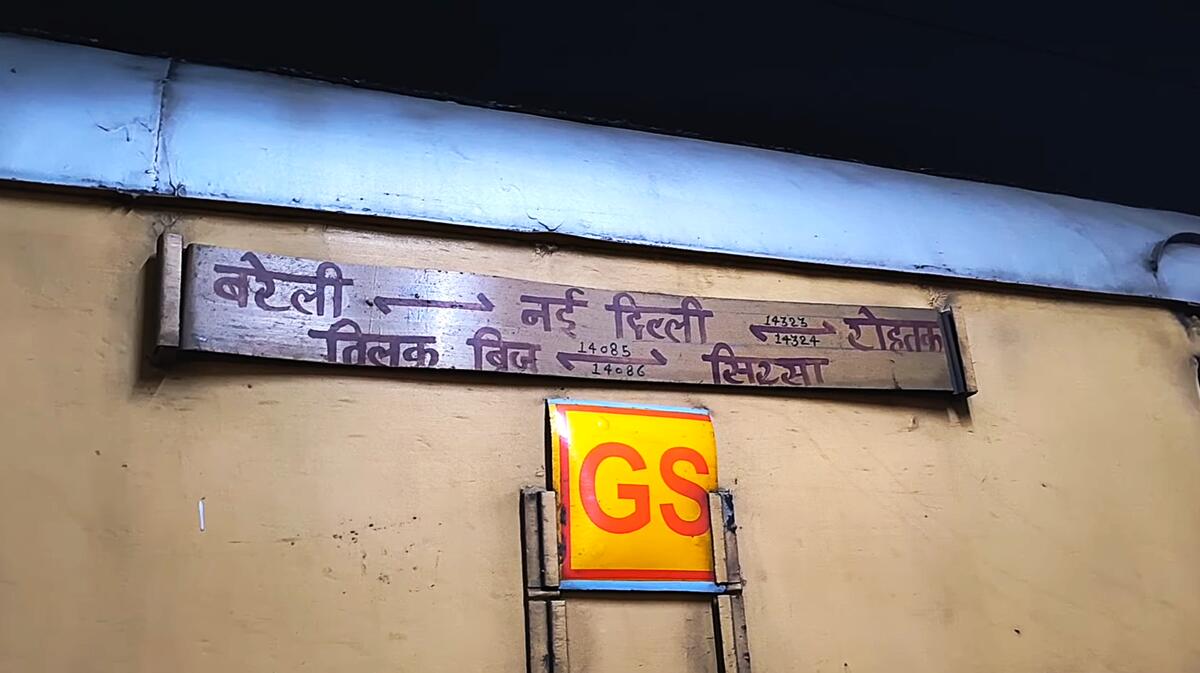 बरेली ←→ नई दिल्ली ←→ रोहतक
14323
14324
तिलक ब्रिज ←→ सिरसा
14085
14086
GS